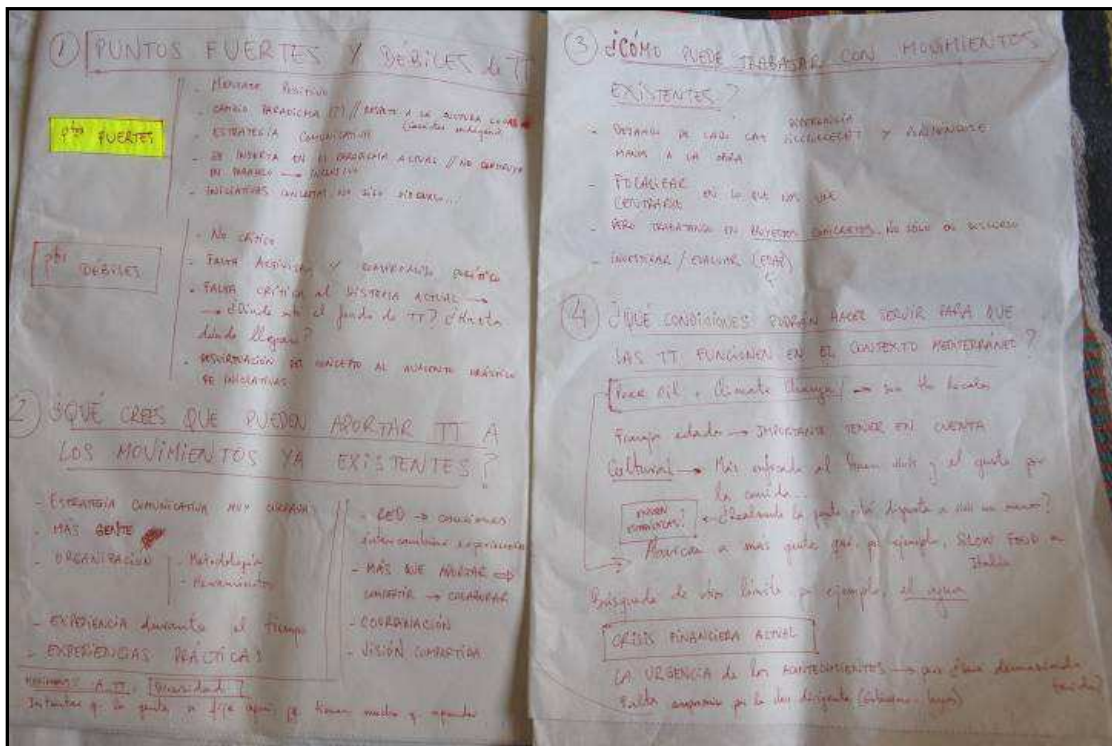 ① PUNTOS FUERTES Y DÉBILES de TT
ptos FUERTES
- MENSAJE POSITIVO
- CAMBIO PARADIGMA TT // RESPETO A LA CULTURA LOCAL
- ESTRATEGIA COMUNICATIVA
- SE INSERTA EN EL PARADIGMA ACTUAL // NO CONSTRUYE
EN PARALELO →
- INICIATIVAS CONCRETAS, NO SÓLO DISCURSO...
ptos DÉBILES
- No crítico
- FALTA ACTIVISMO Y COMPROMISO POLÍTICO
- FALTA CRÍTICA AL SISTEMA ACTUAL →
→ ¿Dónde está el fondo de TT? ¿Hasta
dónde llegan?
- DESVIRTUACIÓN DEL CONCEPTO AL AUMENTO DRÁSTICO
DE INICIATIVAS
2) ¿QUÉ CREES QUE PUEDEN APORTAR TT A
LOS MOVIMIENTOS YA EXISTENTES?
- ESTRATEGIA COMUNICATIVA MUY CURRADA
- MÁS GENTE
- ORGANIZACIÓN
- Metodología
- Herramientas
- EXPERIENCIA durante el tiempo
- EXPERIENCIAS PRÁCTICAS
- RED → conexiones
intercambiar experiencias
- MÁS QUE APORTAR ⇨
COMPARTIR → COLABORAR
- COORDINACIÓN
- VISIÓN COMPARTIDA
A TT: ¿Diversidad?
Intentar q. la gente se fije aquí, pq tienen mucho q. aprender
③ ¿CÓMO PUEDE TRABAJAR CON MOVIMIENTOS
EXISTENTES?
- DEJANDO DE LADO LAS DIFERENCIAS Y PONIÉNDOSE
MANOS A LA OBRA
- FOCALIZAR
CENTRARSE EN LO QUE NOS UNE
- PERO TRABAJANDO EN PROYECTOS CONCRETOS, NO SÓLO EN DISCURSO
- INVESTIGAR / EVALUAR
④ ¿QUÉ CONDICIONES PODRÁN HACER SERVIR PARA QUE
LAS TT FUNCIONEN EN EL CONTEXTO MEDITERRÁNEO?
Peak Oil + Climate Change → son los
→ IMPORTANTE TENER EN CUENTA
Cultural → Más enfocado al buen vivir y el gusto por
la comida...
← ¿Realmente la gente está dispuesta a vivir con menos?
a más gente que, por ejemplo, SLOW FOOD en
Italia
Búsqueda de otro límite, por ejemplo, el agua
CRISIS FINANCIERA ACTUAL
LA URGENCIA de los ACONTECIMIENTOS → que ¿sea demasiado
tarde?
Falta por los dirigentes